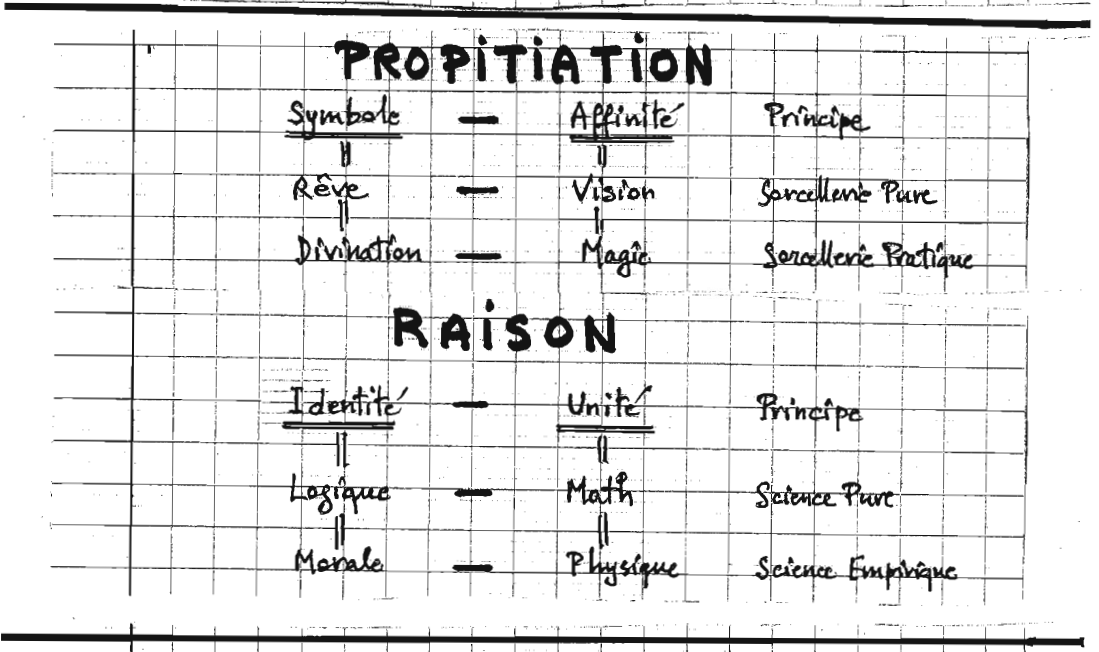 PROPITIATION
Symbole — Affinité Principe
Rêve — Vision Sorcellerie Pure
Divination — Magie Sorcellerie Pratique
RAISON
Identité — Unité Principe
Logique — Math Science Pure
Morale — Physique Science Empirique